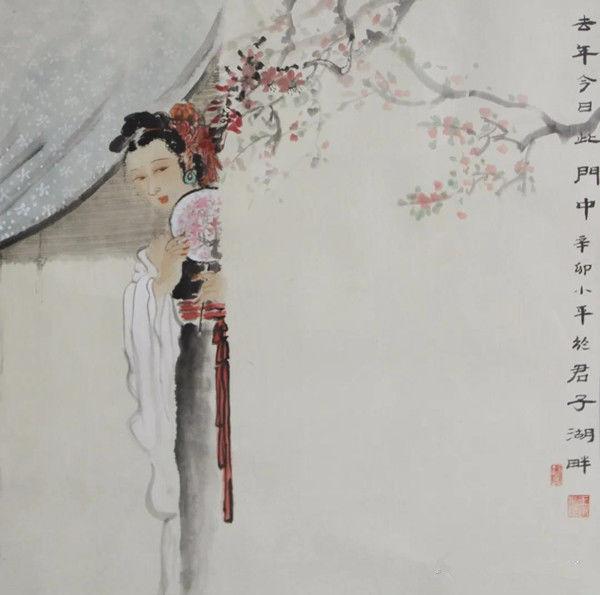 去年今日此門中辛卯小平於君子湖畔